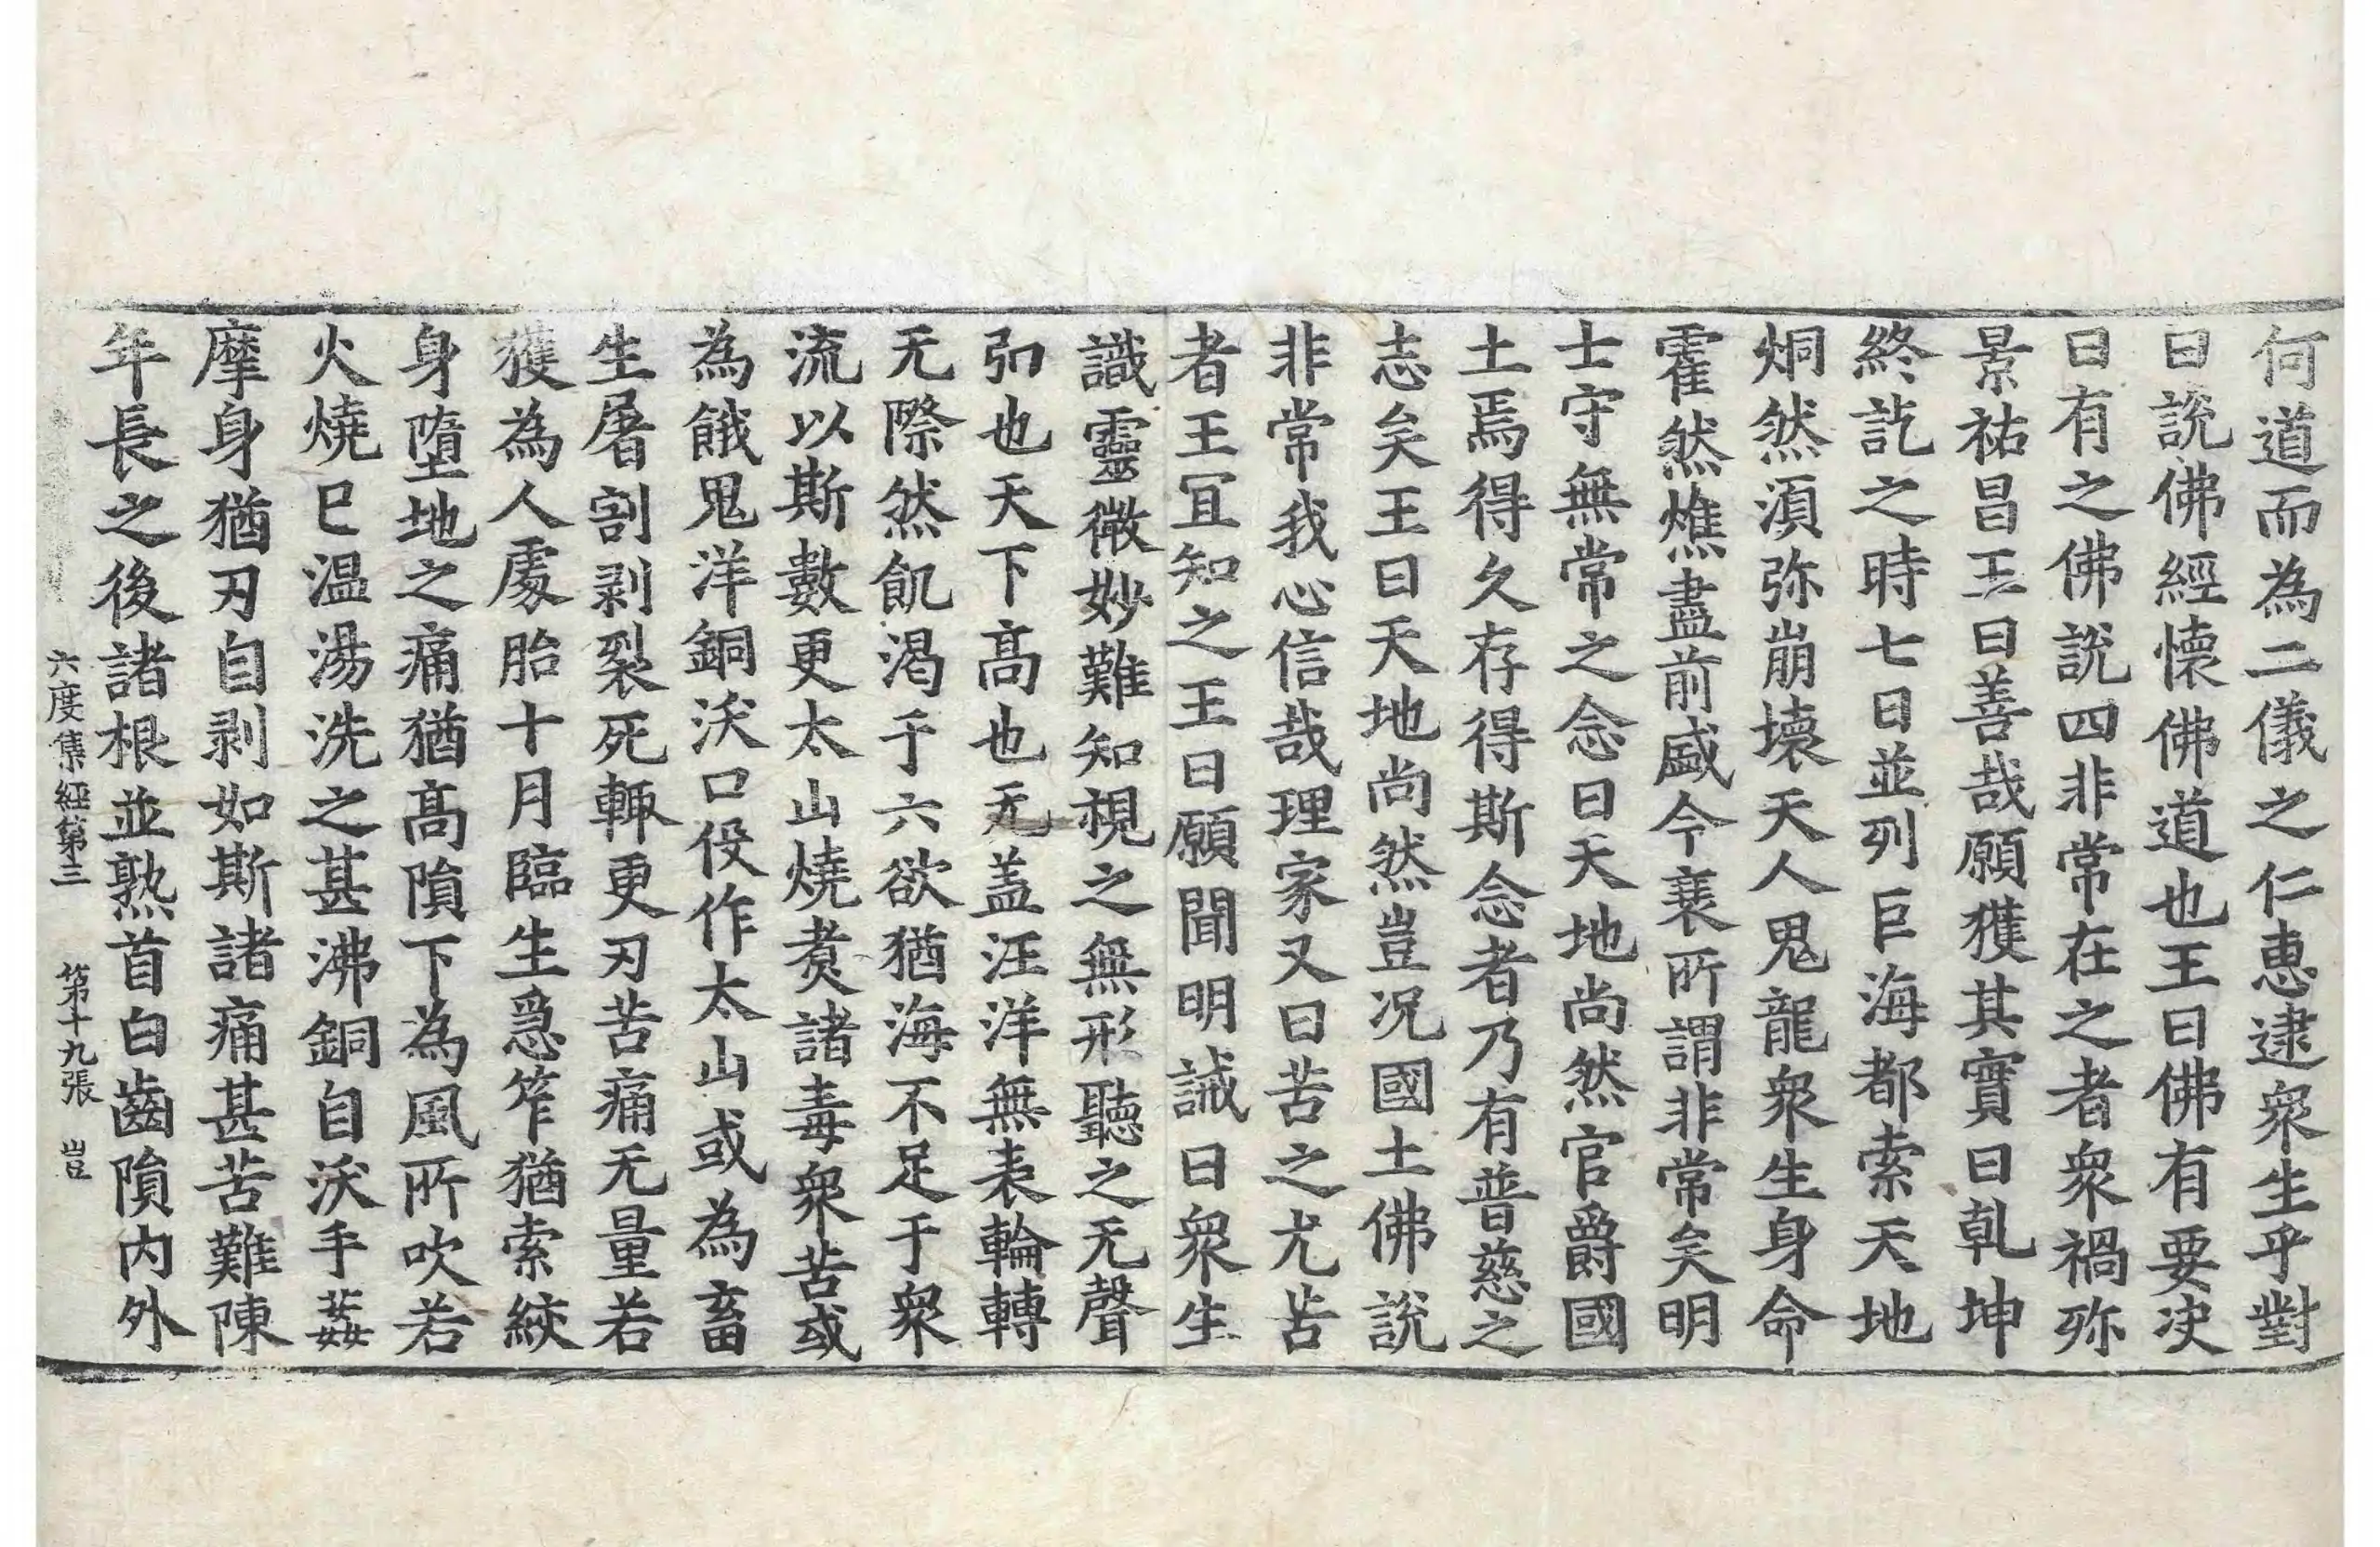 何道而為二儀之仁惠逮衆生乎對
曰說佛經懷佛道也王曰佛有要决
曰有之佛說四非常在之者衆禍弥
景祐昌王曰善哉願獲其實曰乹坤
終訖之時七日並列巨海都索天地
烔然湏弥崩壞天人鬼龍衆生身命
霍然燋盡前盛今衰所謂非常矣明
士守無常之念曰天地尚然官爵國
土焉得久存得斯念者乃有普慈之
志矣王曰天地尚然豈况國土佛說
非常我心信哉理家又曰苦之尤苦
者王冝知之王曰願聞明誡曰衆生
識靈微妙難知視之無形聽之无聲
弘也天下髙也无盖汪洋無表輪轉
无際然飢渴于六欲猶海不足于衆
流以斯數更太山燒煑諸毒衆苦或
為餓鬼洋銅沃口役作太山或為畜
生屠割剥裂死輙更刃苦痛无量若
獲為人處胎十月臨生急笮猶索絞
身墮地之痛猶髙隕下為風所吹若
火燒巳温湯洗之甚沸銅自沃手葌
摩身猶刃自剥如斯諸痛甚苦難陳
年長之後諸根並熟首白齒隕内外
六度集經第三 第十九張 豈